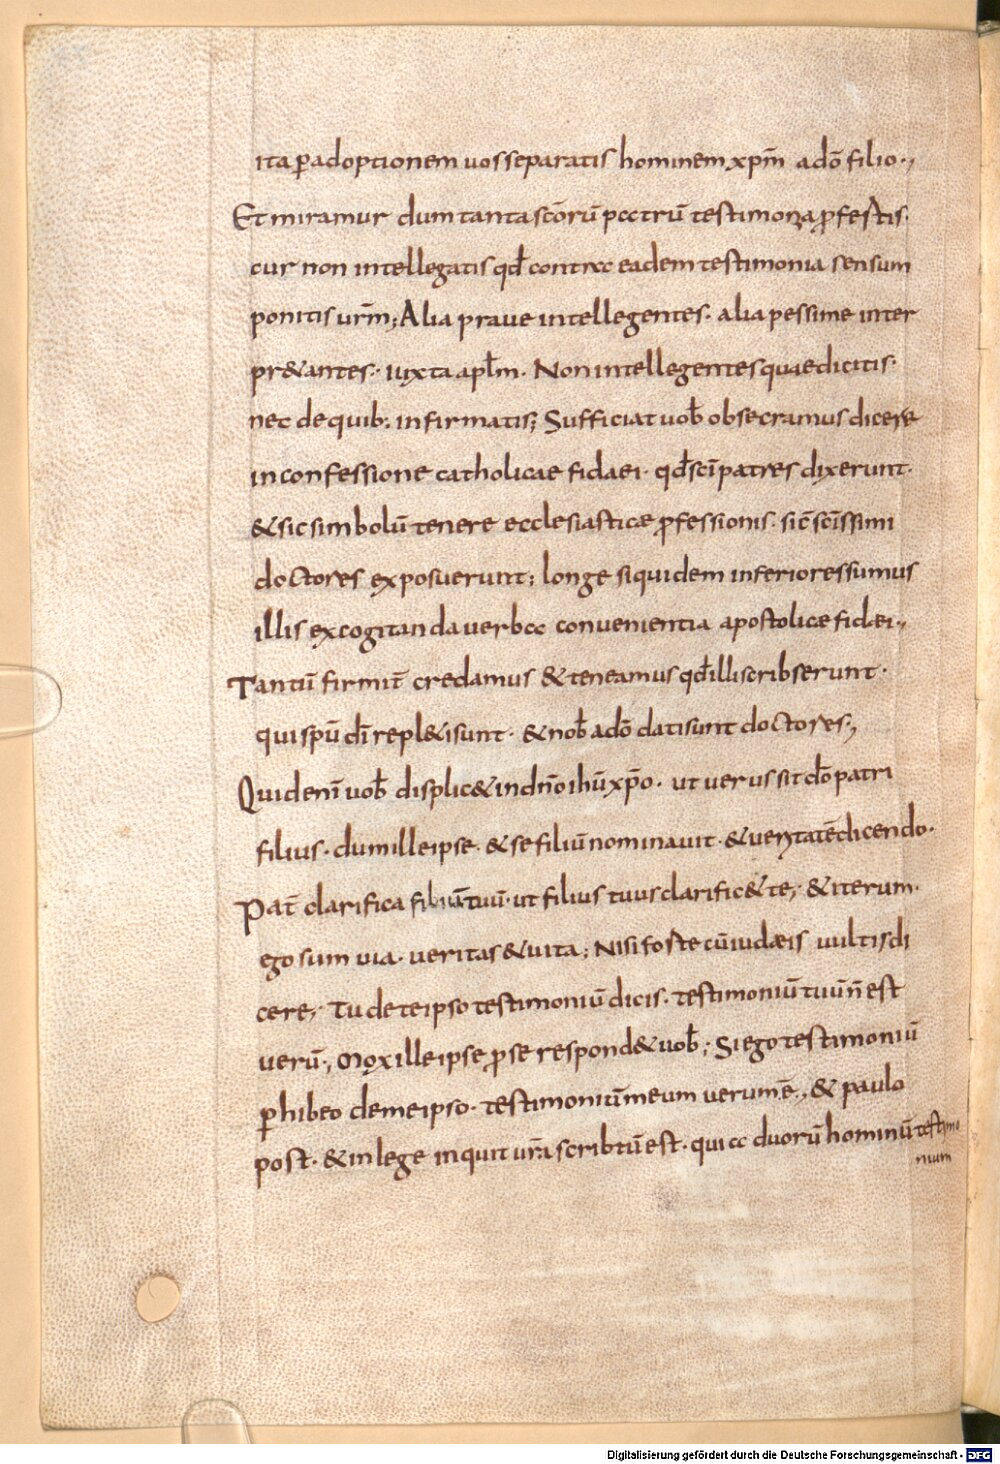 ita ꝑ adoptionem uos separatis hominem xp̄m a dō filio.,
Et miramur dum tanta sc̄orū patrū testimonia ꝓfestis.
cur non intellegatis qđ contra eadem testimonia sensum
ponitis ur̄m; Alia praue intellegentes. alia pessime inter
pr&antes. iuxta apłm. Non intellegentes quae dicitis.
nec de quib: infirmatis; Sufficiat uob̄ obsecramus dicere
in confessione catholicae fidaei. qđ sc̄i patres dixerunt.
& sic simbolū tenere ecclesiasticae ꝓfessionis. sic̄ sc̄issimi
doctores exposuerunt; longe siquidem inferiores sumus
illis excogitanda uerba conuenientia apostolicę fidaei.,
Tantū firmit̄ credamus & teneamus qđ illi scribserunt.
qui spū dī repl&i sunt. & nob̄ a dō dati sunt doctores.,
Quid enī uob̄ displic& in dn̄o ihū xp̄o. ut uerus sit dō patri
filius. dum ille ipse. & se filiū nominauit. & ueritatē dicendo.
Pat̄ clarifica filiū tuū. ut filius tuus clarific& te,. & iterum.
ego sum uia. ueritas & uita; Nisi foste cū iudæis uultis di
cere,. Tu de te ipso testimoniū dicis. testimoniū tuū n̄ est
uerū., Mox ille ipse ꝓ se respond& uob̄; Si ego testimoniū
ꝑhibeo de me ipso. testimoniū meum uerum ē., & paulo
post. & in lege inquit ur̄a scribtū est. quia duorū hominū testimo
nium
Digitalisierung gefördert durch die Deutsche Forschungsgemeinschaft - DFG